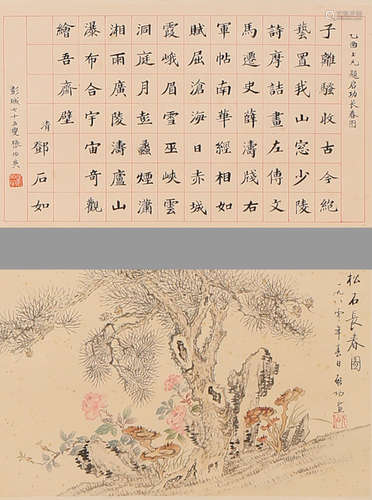 乙酉上元 題启功长春图
子離騷收古今絕
藝置我山窓少陵
詩摩詰畫左傳文
馬遷史薛濤牋右
軍帖南華經相如
賦屈滄海日赤城
霞峨眉雪巫峽雲
洞庭月彭蠡煙瀟
湘雨廣陵濤廬山
瀑布合宇宙奇觀
繪吾齋壁
清 鄧石如
彭城七十五叟張
松石長春圖
一九八零年春日启功画